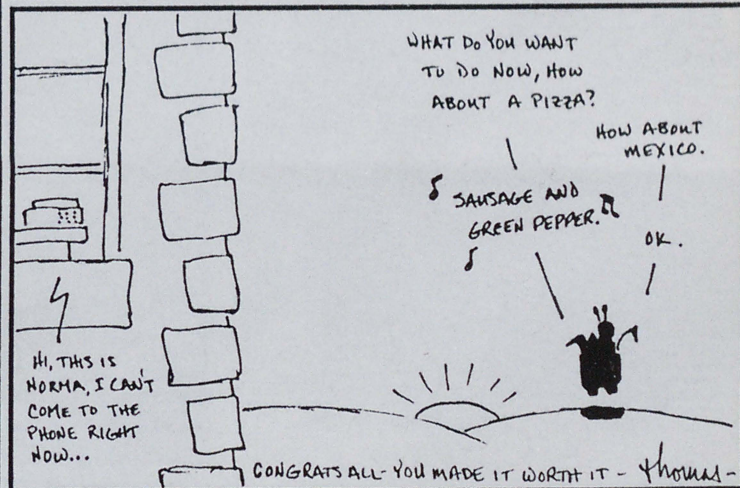 WHAT DO YOU WANT
TO DO NOW, HOW
ABOUT A PIZZA?
HOW ABOUT
MEXICO.
SAUSAGE AND
GREEN PEPPER.
OK.
HI, THIS IS
NORMA, I CAN'T
COME TO THE
PHONE RIGHT
NOW...
CONGRATS ALL - YOU MADE IT WORTH IT - thomas -